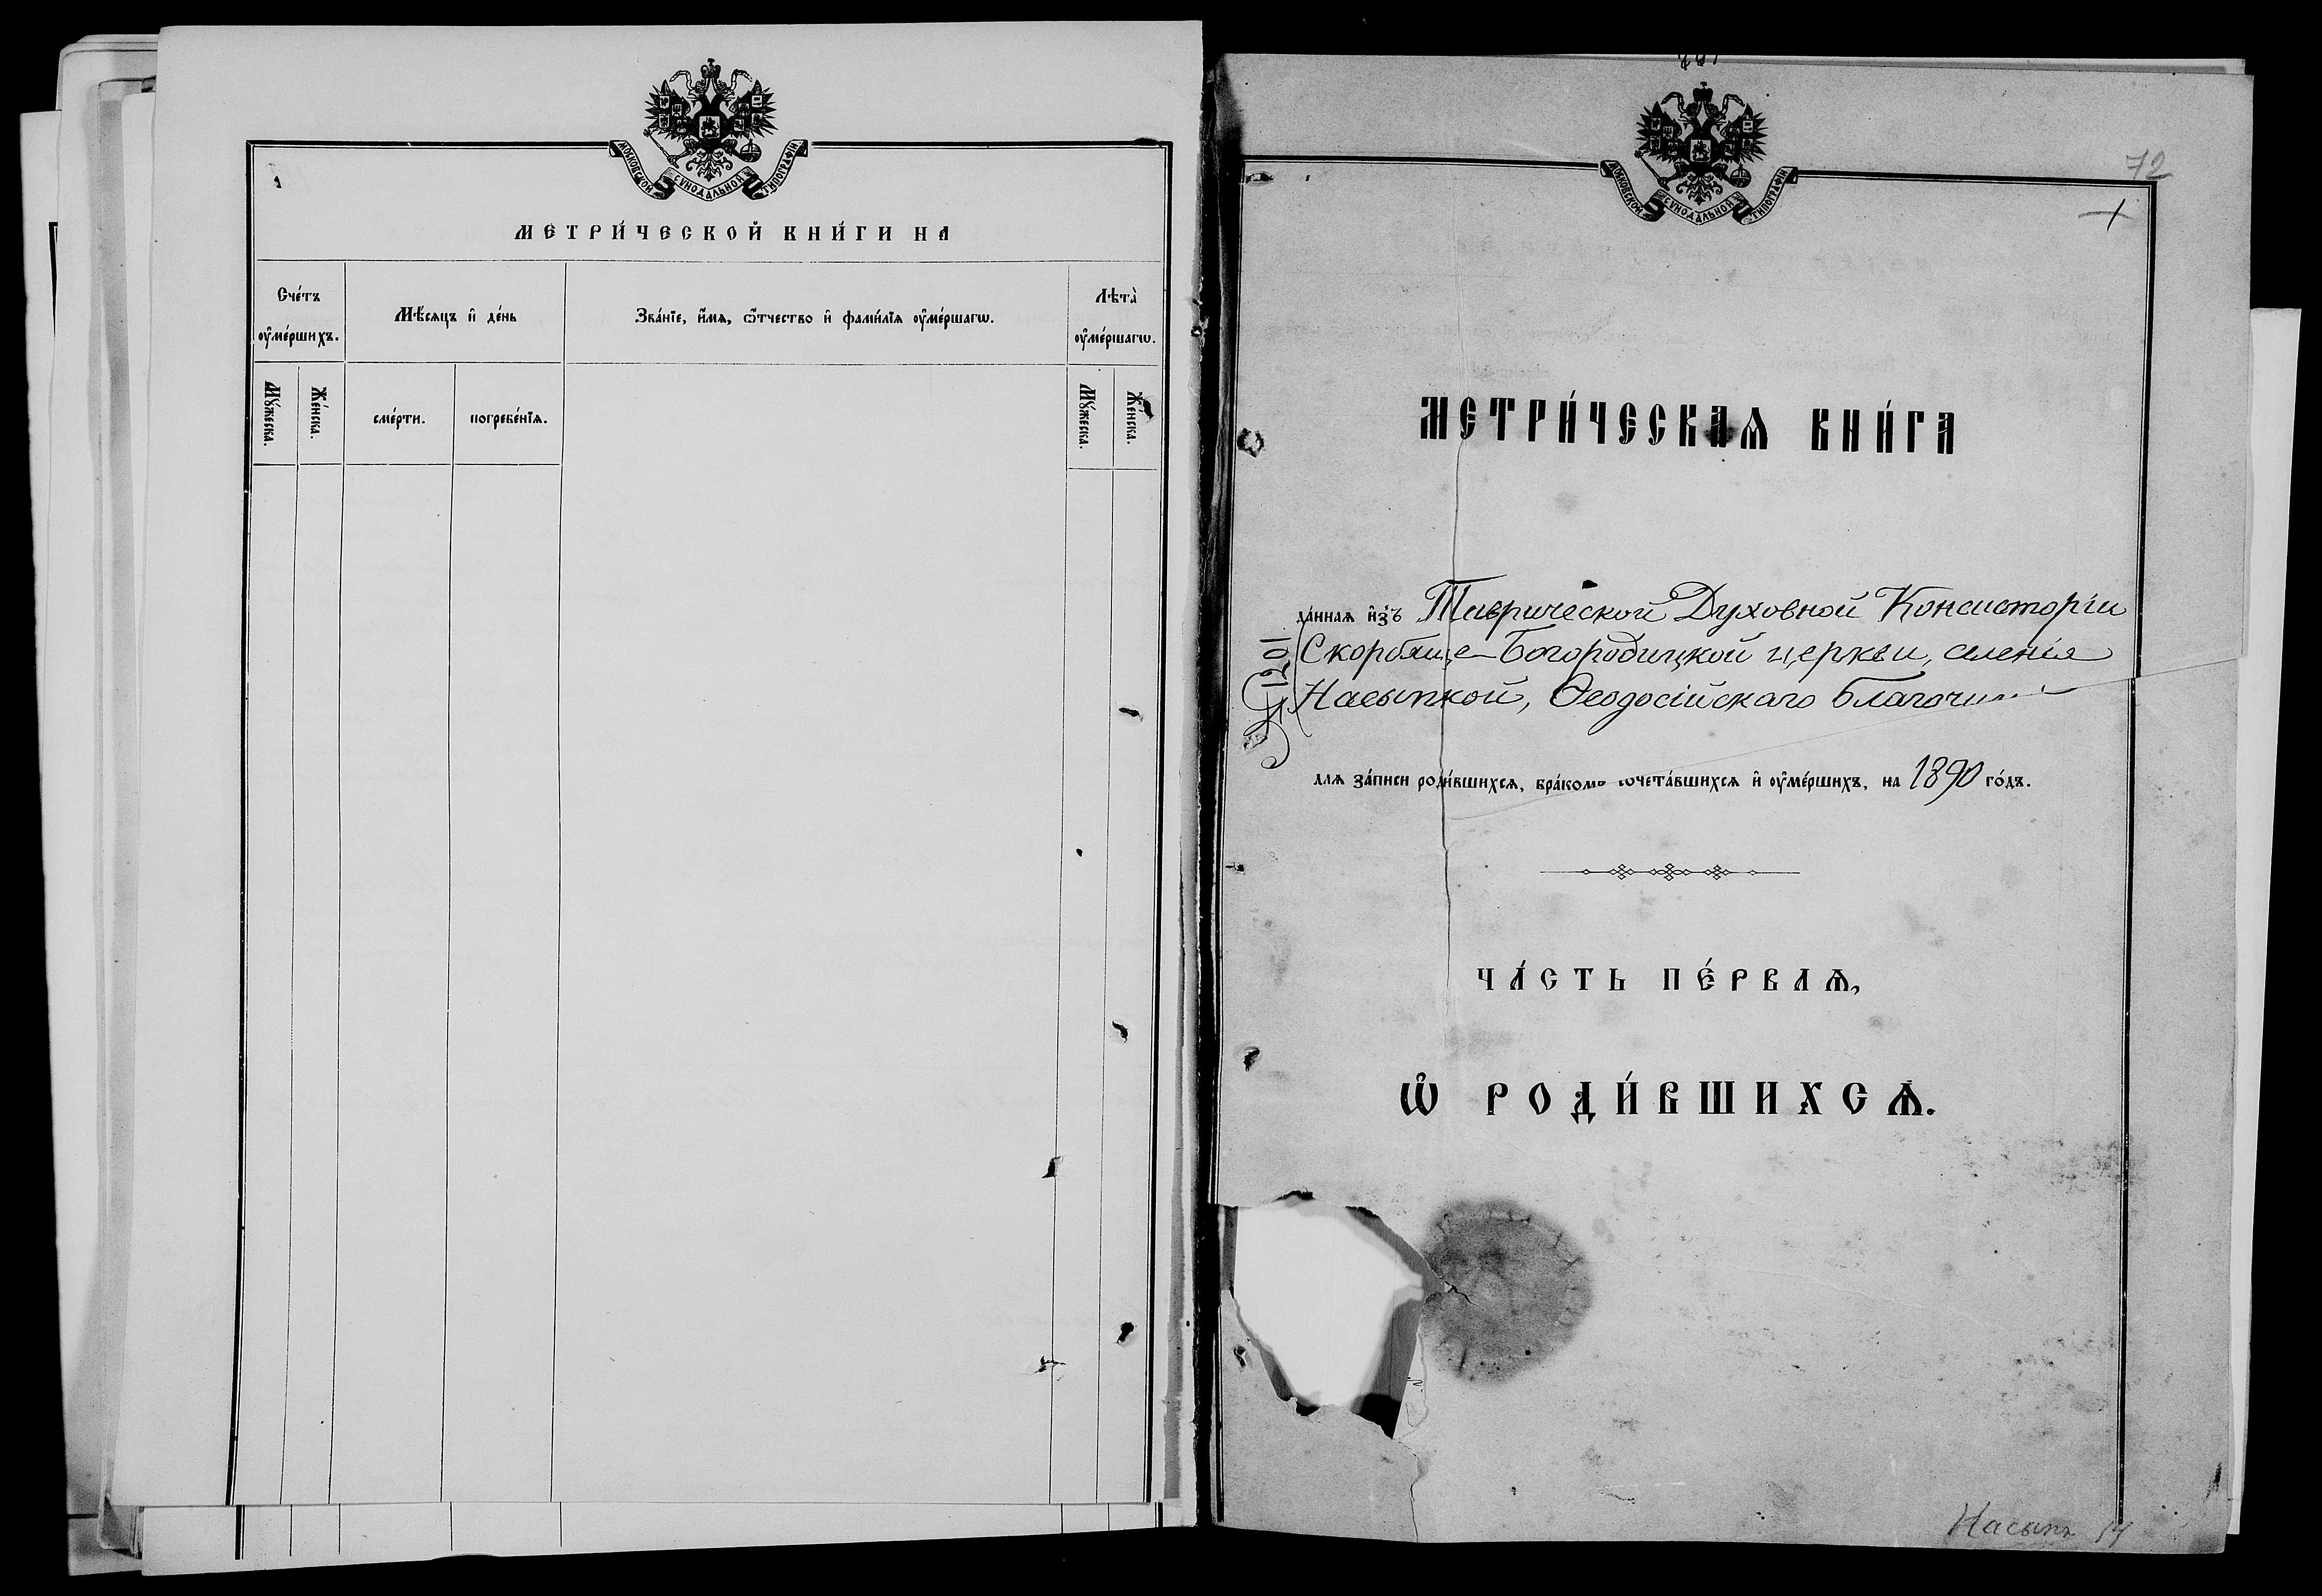 МОСКОВСКОЙ СѴНОДАЛЬНОЙ ТИПОГРАФІИ
МЕТРИ́ЧЕСКОЙ КНИ́ГИ НА
Сче́тъ ᲂу҆ме́ршихъ.
Мѣ́сяцъ и҆ де́нь
Зва́нїе, и҆́мѧ, ѿ́чество и҆ фами́лїѧ ᲂу҆ме́ршагѡ.
Лѣта̀ ᲂу҆ме́ршагѡ.
Мꙋ́жеска.
Же́нска.
сме́рти.
погребе́нїѧ.
Мꙋ́жеска.
Же́нска.
МОСКОВСКОЙ СѴНОДАЛЬНОЙ ТИПОГРАФІИ
72
МЕТРИ́ЧЕСКАѦ КНИ́ГА
да́ннаѧ и҆зъ Таврической Духовной Консисторіи
Скорбяще-Богородицкой церкви, селенія
Насыпкой, Ѳеодосійскаго
№ 1201
длѧ за́писи роди́вшихсѧ, бра́комъ сочета́вшихсѧ и҆ ᲂу҆ме́ршихъ, на 1890 го́дъ.
ЧА́СТЬ ПЕ́РВАѦ,
Ѡ҆ РОДИ́ВШИХСѦ.